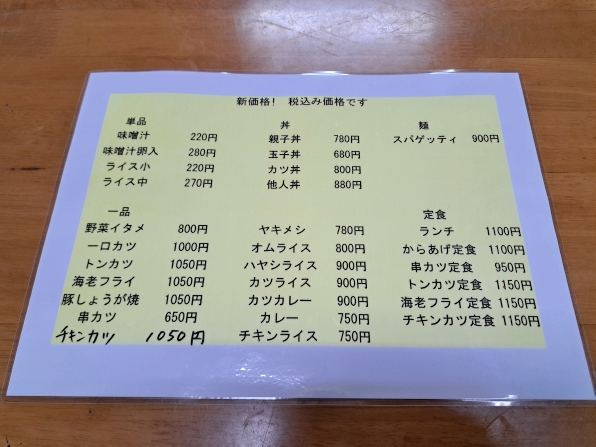 新価格! 税込み価格です
単品
味噌汁 220円
味噌汁卵入 280円
ライス小 220円
ライス中 270円
丼
親子丼 780円
玉子丼 680円
カツ丼 800円
他人丼 880円
麺
スパゲッティ 900円
一品
野菜イタメ 800円
一口カツ 1000円
トンカツ 1050円
海老フライ 1050円
豚しょうが焼 1050円
串カツ 650円
チキンカツ 1050円
ヤキメシ 780円
オムライス 800円
ハヤシライス 900円
カツライス 900円
カツカレー 900円
カレー 750円
チキンライス 750円
定食
ランチ 1100円
からあげ定食 1100円
串カツ定食 950円
トンカツ定食 1150円
海老フライ定食 1150円
チキンカツ定食 1150円